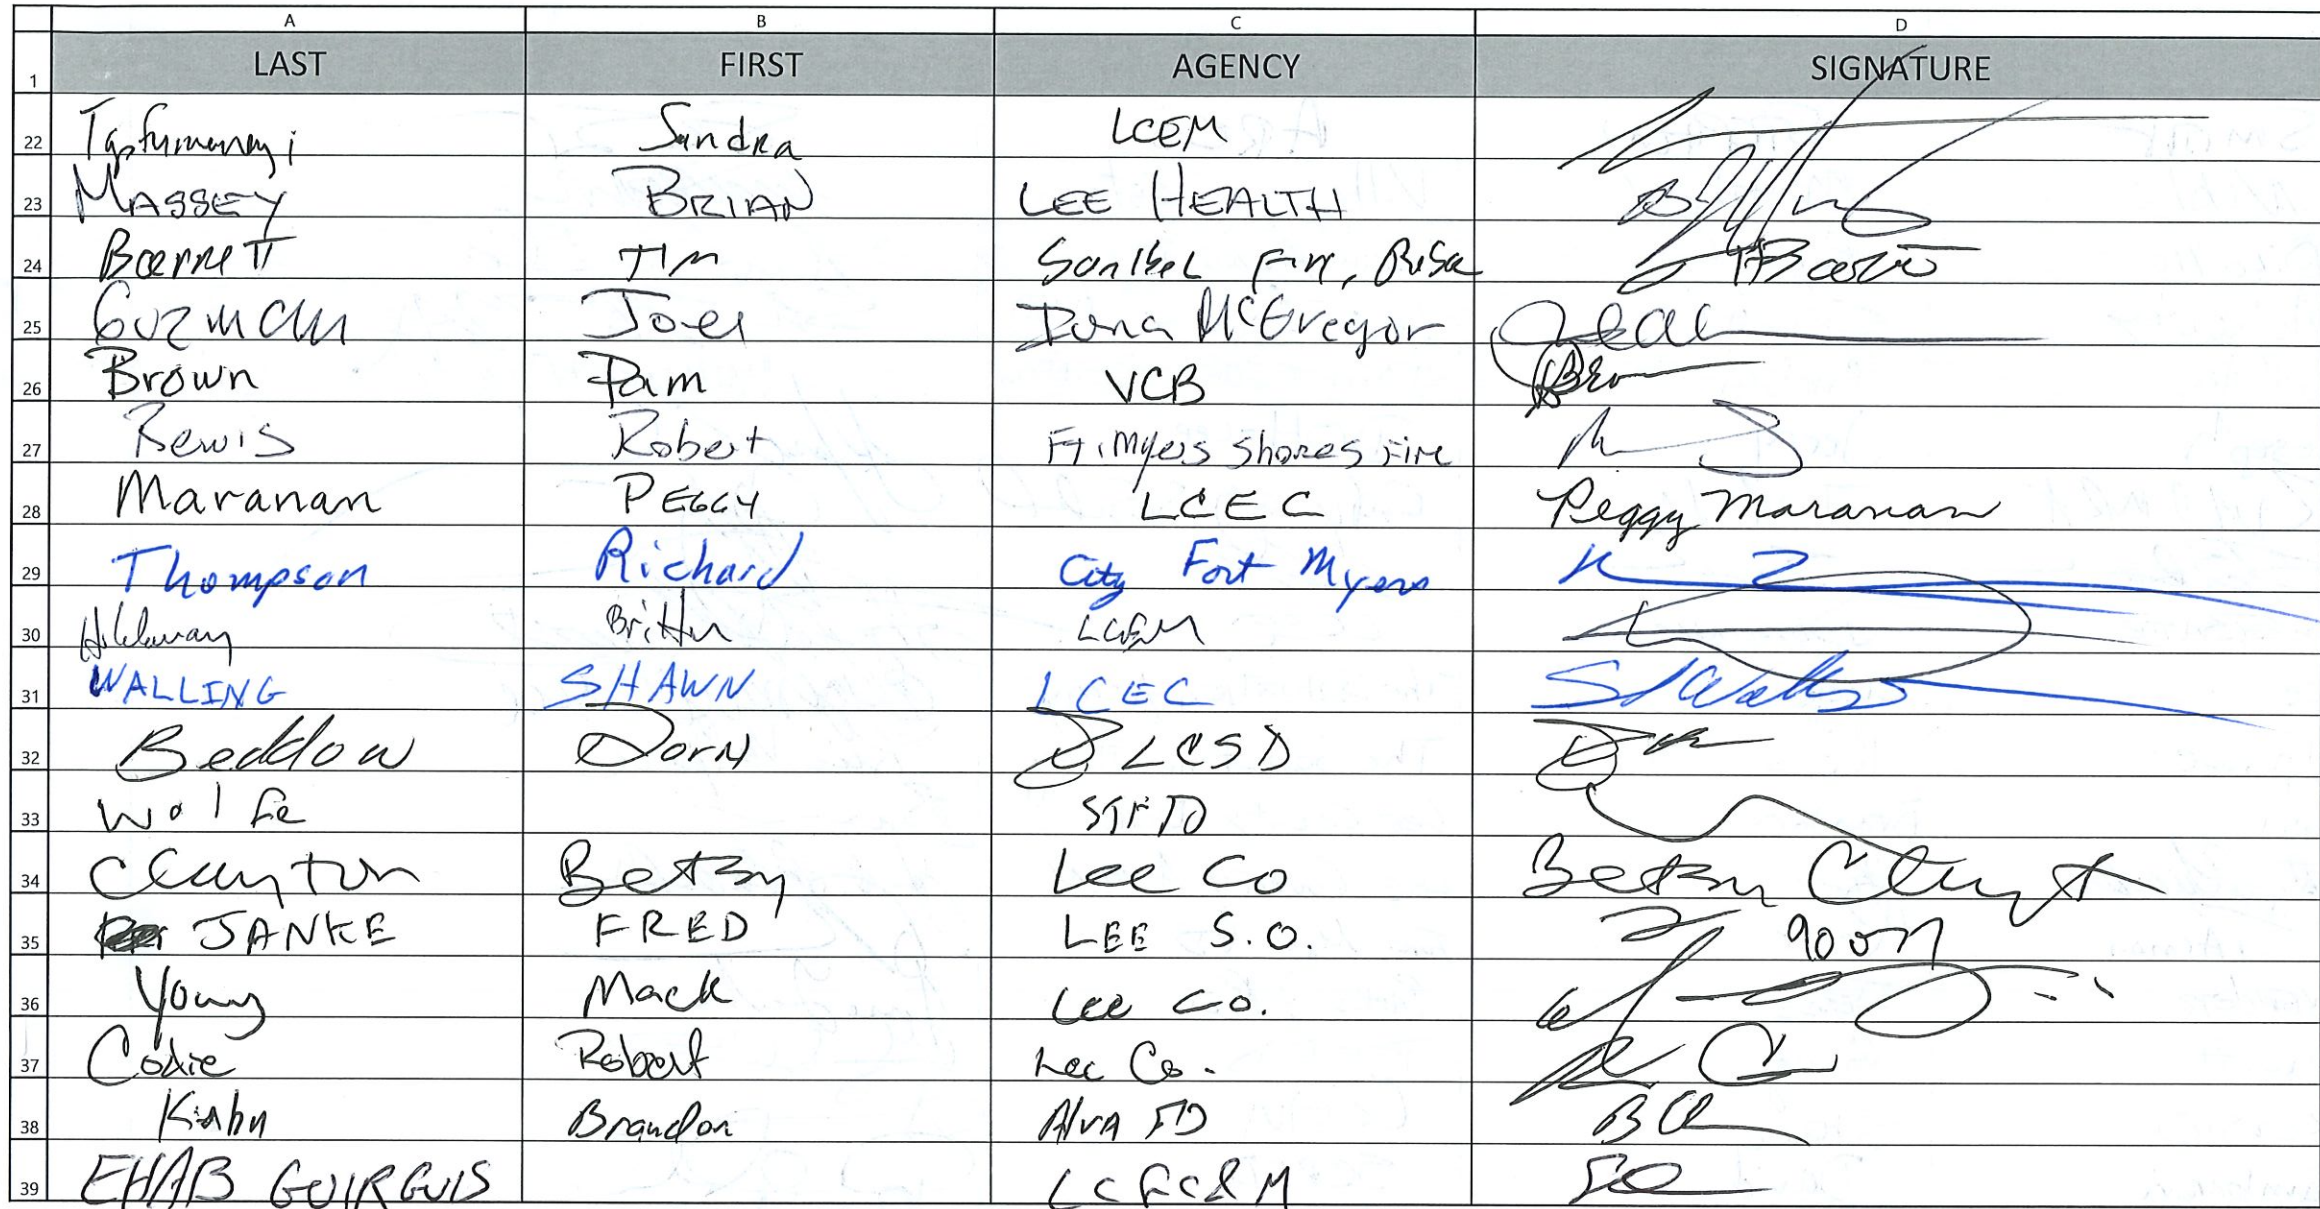 A B C D
LAST FIRST AGENCY SIGNATURE
1
22 Sandra LCEM
23 MASSEY BRIAN LEE HEALTH
24 Barrett TIM Sanibel Fire
25 Guzman Joel Iona McGregor
26 Brown Pam VCB
27 Rewis Robert Ft. Myers Shores Fire
28 Maranan PEGGY LCEC Peggy Maranan
29 Thompson Richard City Fort Myers
30 LCEM
31 WALLING SHAWN LCEC
32 Beddow Dorn LCSD
33 Wolfe
34 Clayton Betsy Lee Co Betsy
35 JANKE FRED LEE S.O.
36 Young Mack Lee Co.
37 Codie Robert Lee Co.
38 Brandon Alva FD
39 EHAB GUIRGUIS